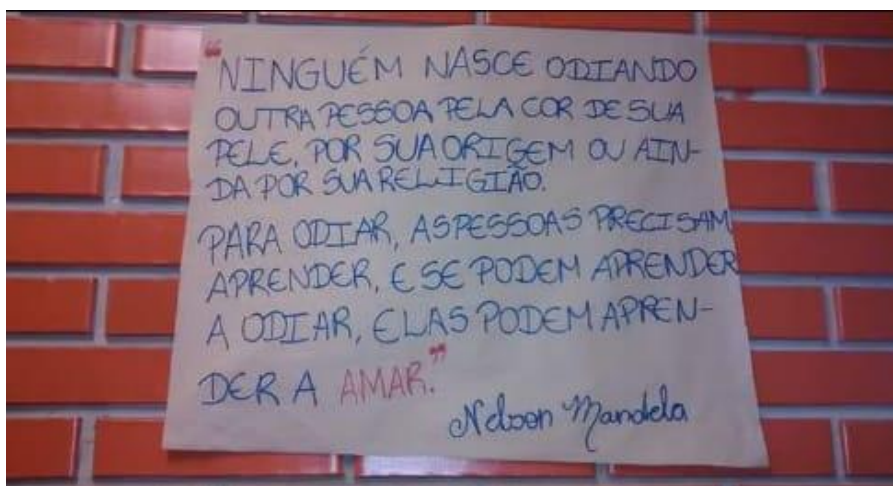 "NINGUÉM NASCE ODIANDO
OUTRA PESSOA PELA COR DE SUA
PELE, POR SUA ORIGEM OU AIN-
DA POR SUA RELIGIÃO.
PARA ODIAR, AS PESSOAS PRECISAM
APRENDER, E SE PODEM APRENDER
A ODIAR, ELAS PODEM APREN-
DER A AMAR."
Nelson Mandela